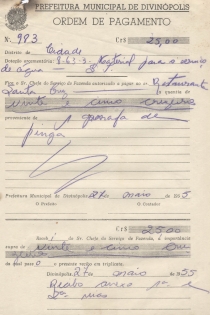 PREFEITURA MUNICIPAL DE DIVINÓPOLIS
ORDEM DE PAGAMENTO
Cr$ 25,00
N.º 983
Distrito de Cidade
Dotação orçamentária: 8-63-3- Material para o serviço
de água
Fica o Sr. Chefe do Serviço de Fazenda autorizado a pagar ao sr. Restaurante
Santa Cruz a quantia de
vinte e cinco cruzeiros
proveniente de garrafa de
pinga
Prefeitura Municipal de Divinópolis, 27 de maio de 1955
O Prefeito O Contador
Cr$ 25,00
Recebi do Sr. Chefe do Serviço de Fazenda, a importância
supra de vinte e cinco cru
zeiros
da qual passo o presente recibo em triplicata.
Divinópolis, 27 de maio de 55